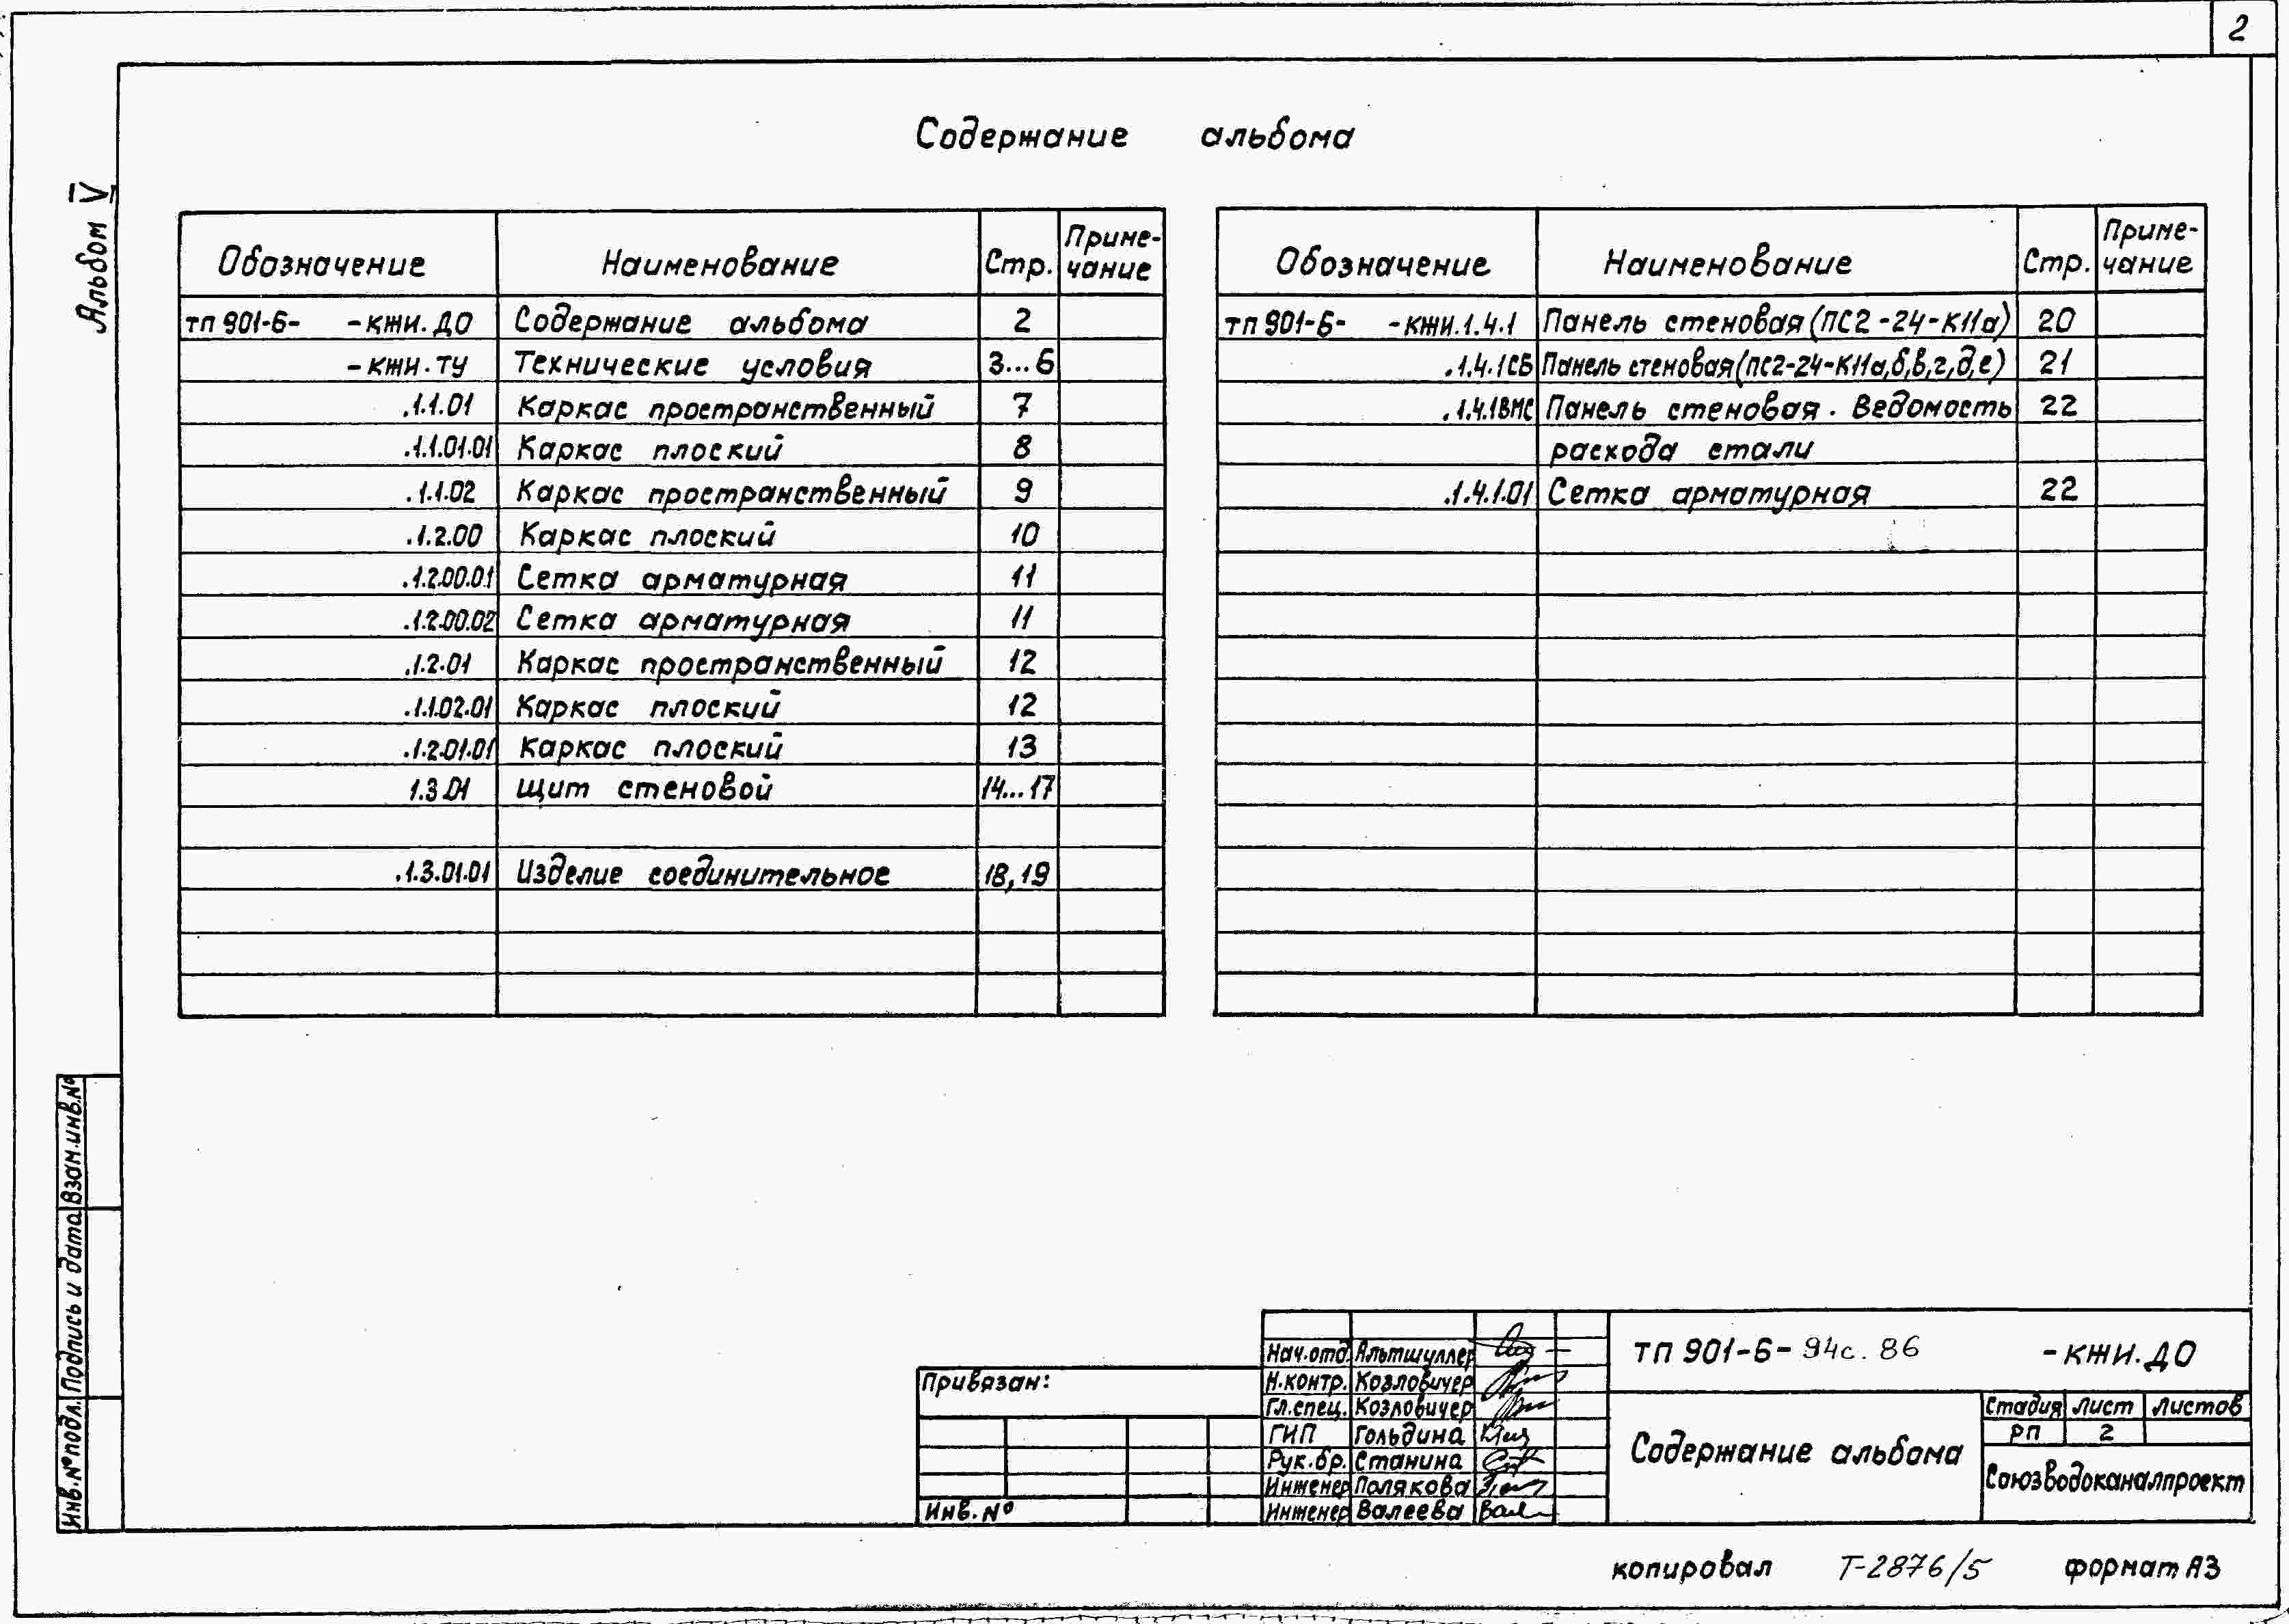 2
Содержание альбома
Альбом V
Обозначение Наименование Стр. Приме-
чание
тп 901-6- -кжи.ДО Содержание альбома 2
-кжи.ту Технические условия 3...6
.1.1.01 Каркас пространственный 7
.1.1.01.01 Каркас плоский 8
.1.1.02 Каркас пространственный 9
.1.2.00 Каркас плоский 10
.1.2.00.01 Сетка арматурная 11
.1.2.00.02 Сетка арматурная 11
.1.2.01 Каркас пространственный 12
.1.1.02.01 Каркас плоский 12
.1.2.01.01 Каркас плоский 13
1.3.01 Щит стеновой 14...17
.1.3.01.01 Изделие соединительное 18,19
Обозначение Наименование Стр. Приме-
чание
тп 901-6- -кжи.1.4.1 Панель стеновая (ПС2-24-К11а) 20
.1.4.1СБ Панель стеновая (ПС2-24-К11а,б,в,г,д,е) 21
.1.4.1ВМС Панель стеновая. Ведомость 22
расхода стали
.1.4.1.01 Сетка арматурная 22
Взам.инв.№
Подпись и дата
Инв.№подл.
Привязан:
Инв.№
Нач.отд. Альтшуллер
Н.контр. Козловичер
Гл.спец. Козловичер
ГИП Гольдина
Рук.бр. Станина
Инженер Полякова
Инженер Валеева
тп 901-6-94с.86 -кжи.ДО
Содержание альбома
Стадия Лист Листов
РП 2
Союзводоканалпроект
копировал Т-2876/5 формат А3